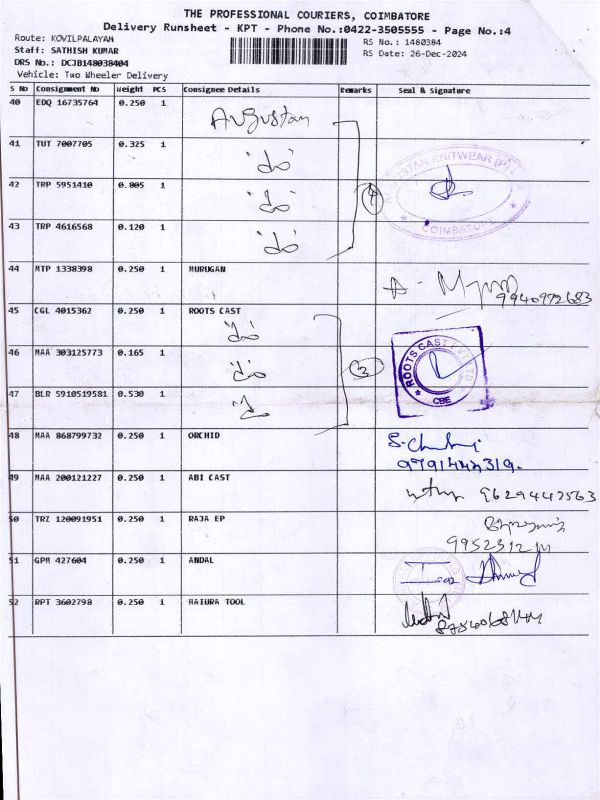 THE PROFESSIONAL COURIERS, COIMBATORE
Delivery Runsheet - KPT - Phone No.:0422-3505555 - Page No.:4
Route: KOVILPALAYAM RS No.: 1480384
Staff: SATHISH KUMAR RS Date: 26-Dec-2024
DRS No.: DCJB148038404
Vehicle: Two Wheeler Delivery
S No Consignment No Weight PCS Consignee Details Remarks Seal & Signature
40 EDQ 16735764 0.250 1 Augustan
41 TUT 7007705 0.325 1 "do"
42 TRP 5951410 0.805 1 "do"
43 TRP 4616568 0.120 1 "do"
4
KNITWEAR (P)
COIMBATORE
44 MTP 1338398 0.250 1 MURUGAN 9940972683
45 CGL 4015362 0.250 1 ROOTS CAST
"do"
46 MAA 303125773 0.165 1 "do"
47 BLR 5910519581 0.530 1
3
ROOTS CAST PVT LTD
CBE
48 MAA 868799732 0.250 1 ORCHID
9791442319.
49 MAA 200121227 0.250 1 ABI CAST 9629442563
50 TRZ 120091951 0.250 1 RAJA EP
51 GPM 427604 0.250 1 ANDAL
52 RPT 3602798 0.250 1 MAIURA TOOL